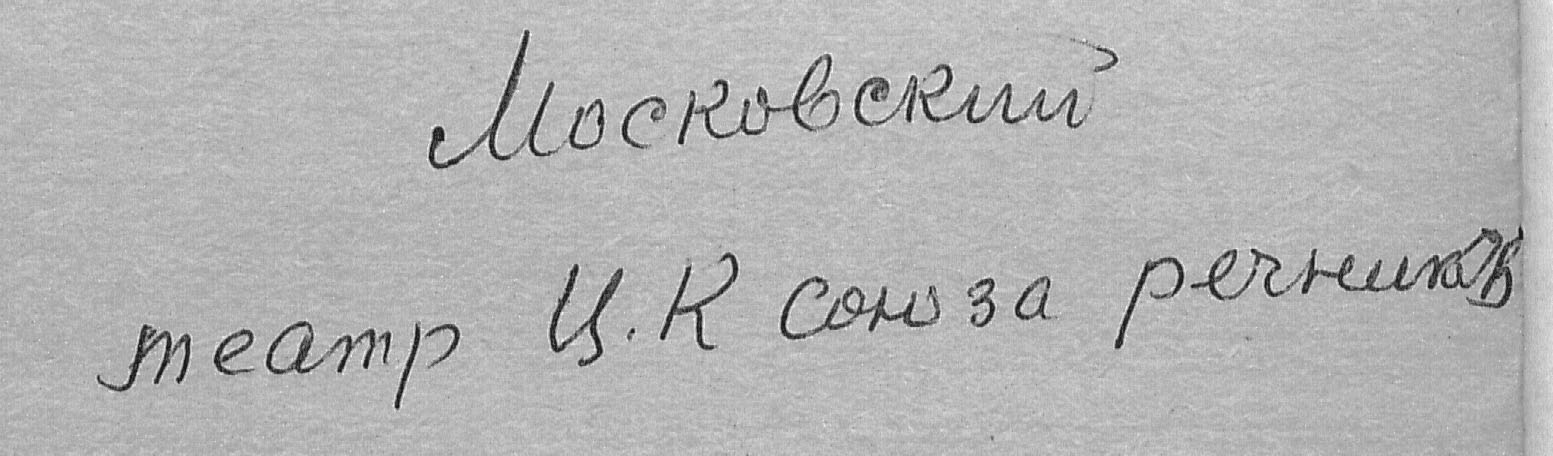 Московский
театр Ц.К союза речников